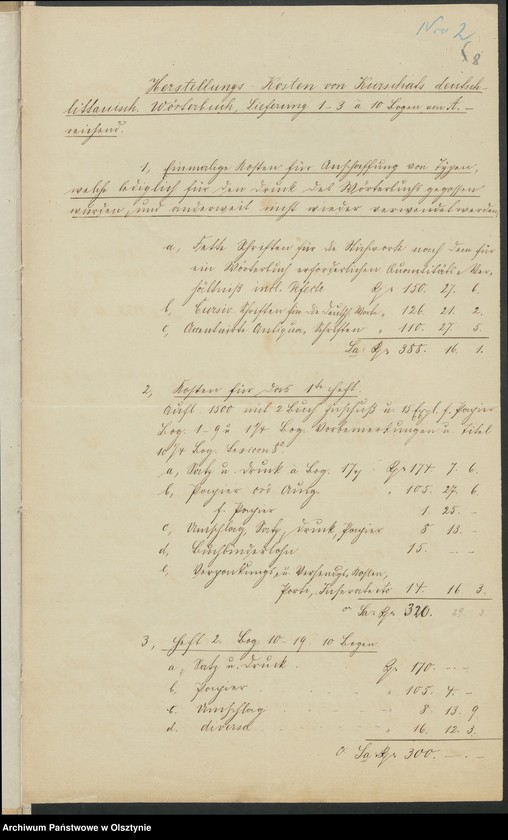 No 2
8
Herstellungs-Kosten von Kurschats deutsch-
littauisch. Wörterbuch, Lieferung 1-3 à 10 Bogen von A. -
reichend.
1, Einmalige Kosten für Anschaffung von Typen,
welche lediglich für den Druck des Wörterbuchs gegossen
wurden, und anderweit nicht wieder verwendet werden,
a, Fette Schriften für die Stichworte nach dem für
ein Wörterbuch erforderlichen Quantitäts-Ver-
hältniß incl. Defecte 150. 27. 6.
b, Cursiv-Schriften für die deutsch. Worte " 126. 21. 2.
c, Accentuirte Antiqua-Schriften " 110. 27. 5.
Sa. 388. 16. 1.
2, Kosten für das 1te Heft.
Aufl. 1500 mit 2 Buch Zuschuß u. 15 Expl. f. Papier
Bog. 1-9 u 1 3/4 Bog. Vorbemerkungen u. Titel
10 3/4 Bog. Lexicon 8°.
a, Satz u. Druck à Bog. 174 7. 6.
b, Papier 105. 27. 6.
f. Papier 1. 25. -
c, Umschlag, Satz, Druck, Papier 8 13. -
d, Buchbinderlohn 15. - -
e, Verpackungs- u. Versendgs. Kosten,
Porti, Inserate etc 14. 16 3.
Sa. 320. 29. 3
3, Heft 2. Bog. 10-19. 10 Bogen
a, Satz u. Druck. 170. - -
b, Papier " 105. 4. -
c. Umschlag " 8. 13. 9
d. diversa " 16. 12. 3.
Sa. 300. - -
Archiwum Państwowe w Olsztynie